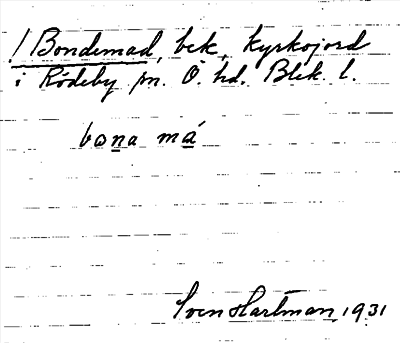 ! Bondemad, bek, kyrkojord
i Rödeby sn. Ö. hd. Blek. l.
bona má
Sven Hartman 1931